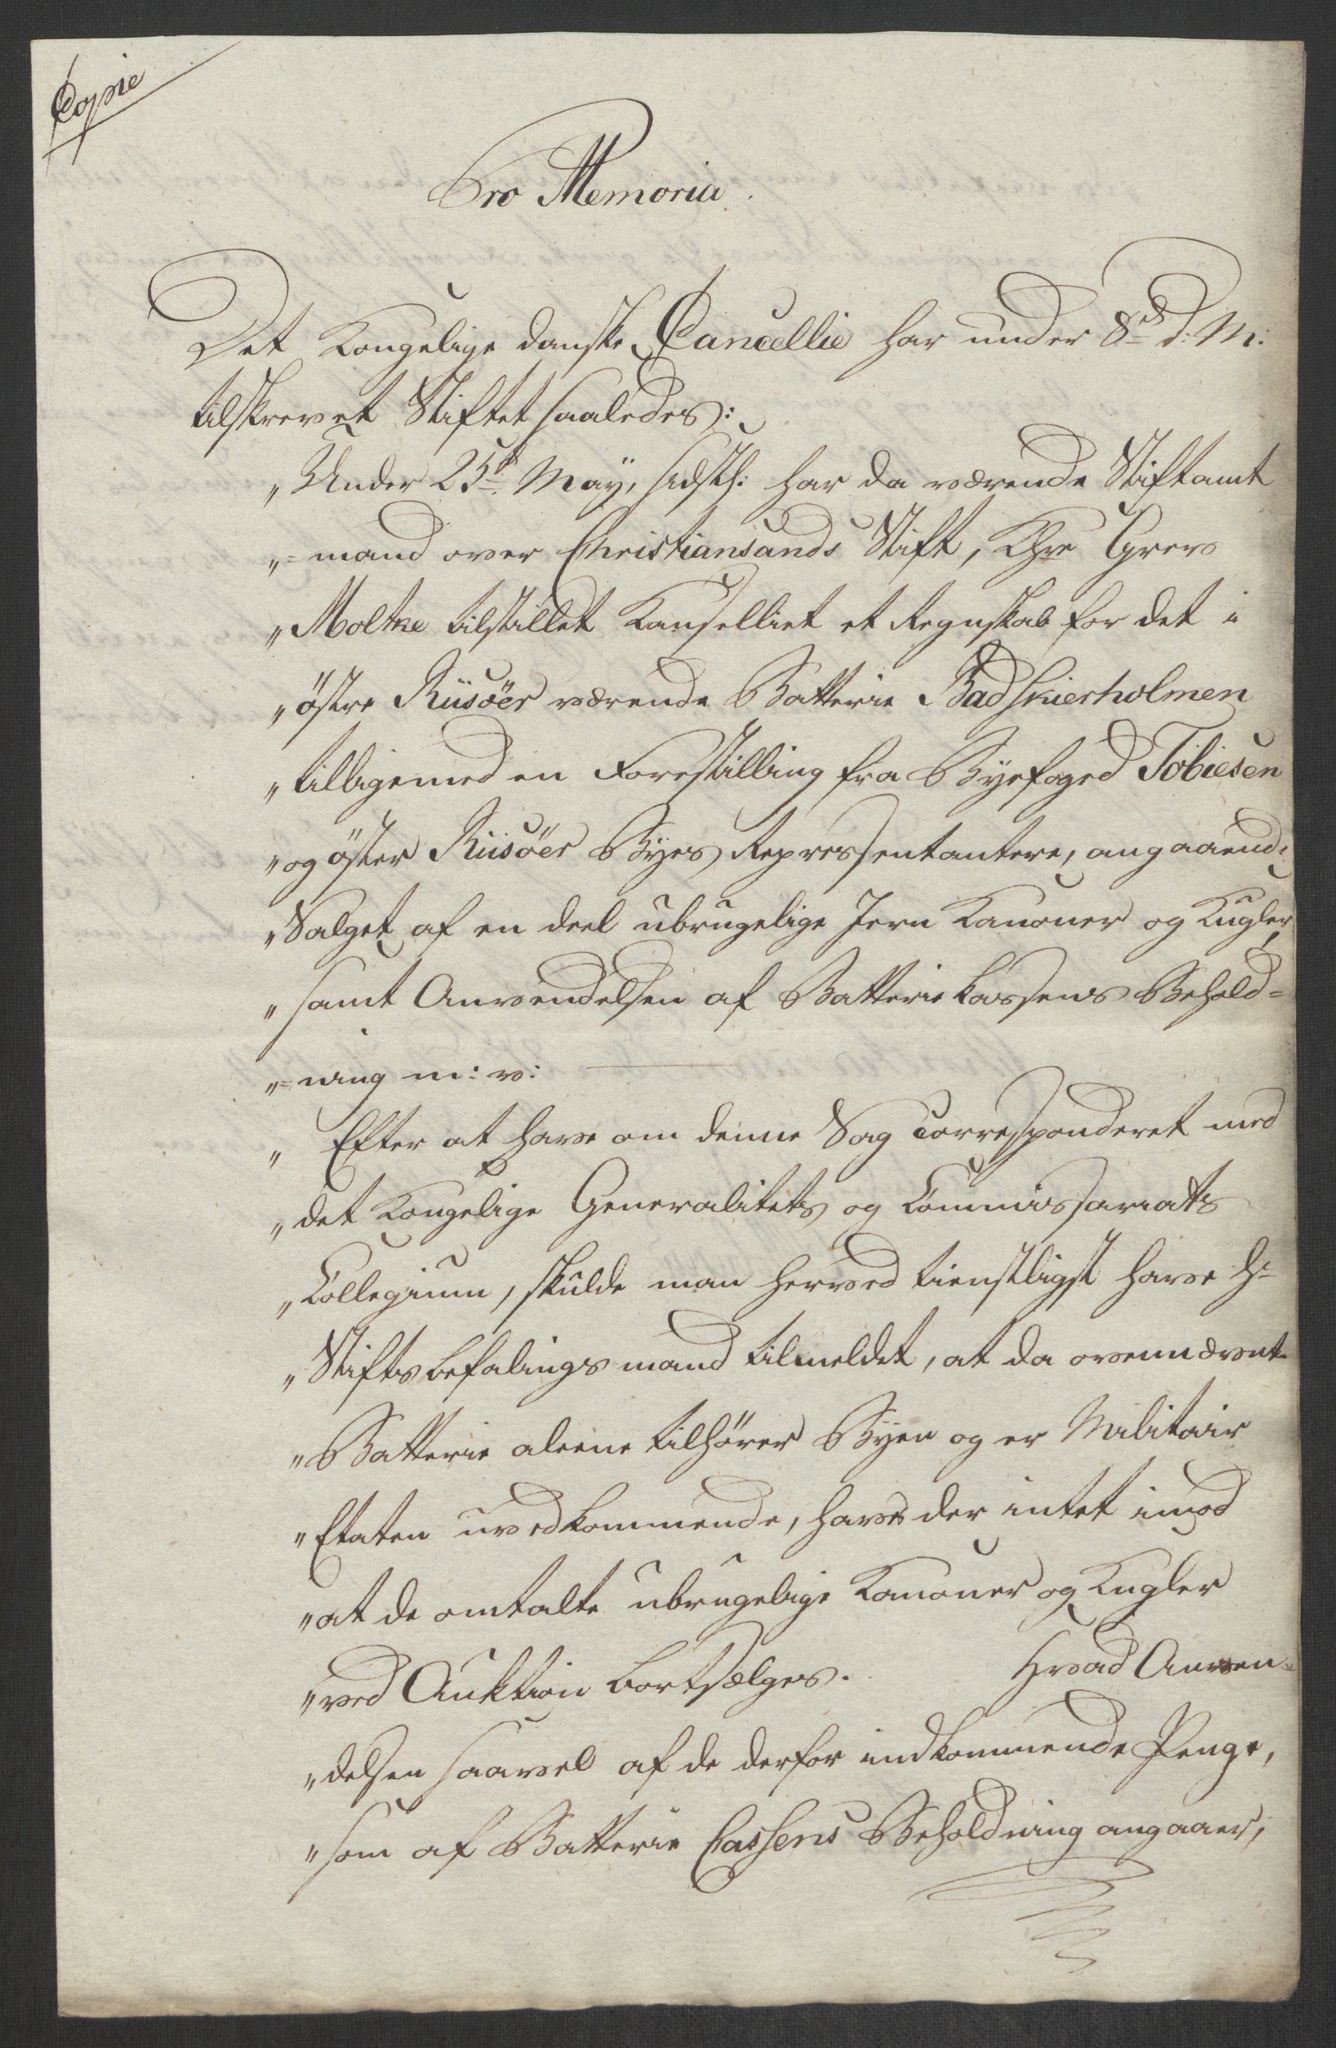 Copie
Pro Memoria.
Det Kongelige danske Cancellie har under 8de d: M:
tilskrevet Stiftet saaledes:
„Under 25de May, sidstl: har da værende Stiftamt
„=mand over Christiansands Stift, Khre Grev
„Moltke tilstillet Kanselliet et Regnskab for det i
„östre Riisöer værende Batterie Badskierholmen
„tilligemed en Forestilling fra Byefoged Tobiesen
„og öster Riisöer Byes Repræsentantere, angaaende
„Salget af en deel ubrugelige Jern Kanoner og Kugler,
„samt Anvendelsen af Batteriekassens Behold=
„=ning m: v:
„ Efter at have om denne Sag correspondert med
„det Kongelige Generalitets og Commissariats
„Collegium, skulde man herved tienstligst have Hr
„Stiftsbefalingsmand tilmeldet, at da ovennævnte
„Batterie aleene tilhörer Byen og er Militair
„Etaten uvedkommende, haves der intet imod
„at de omtalte ubrugelige Kanoner og Kugler
„ved Auktion bortsælges. Hvad Anven=
„delsen saavel af de derfor indkommende Penge,
„som af Batterie Cassens Beholdning angaaer,